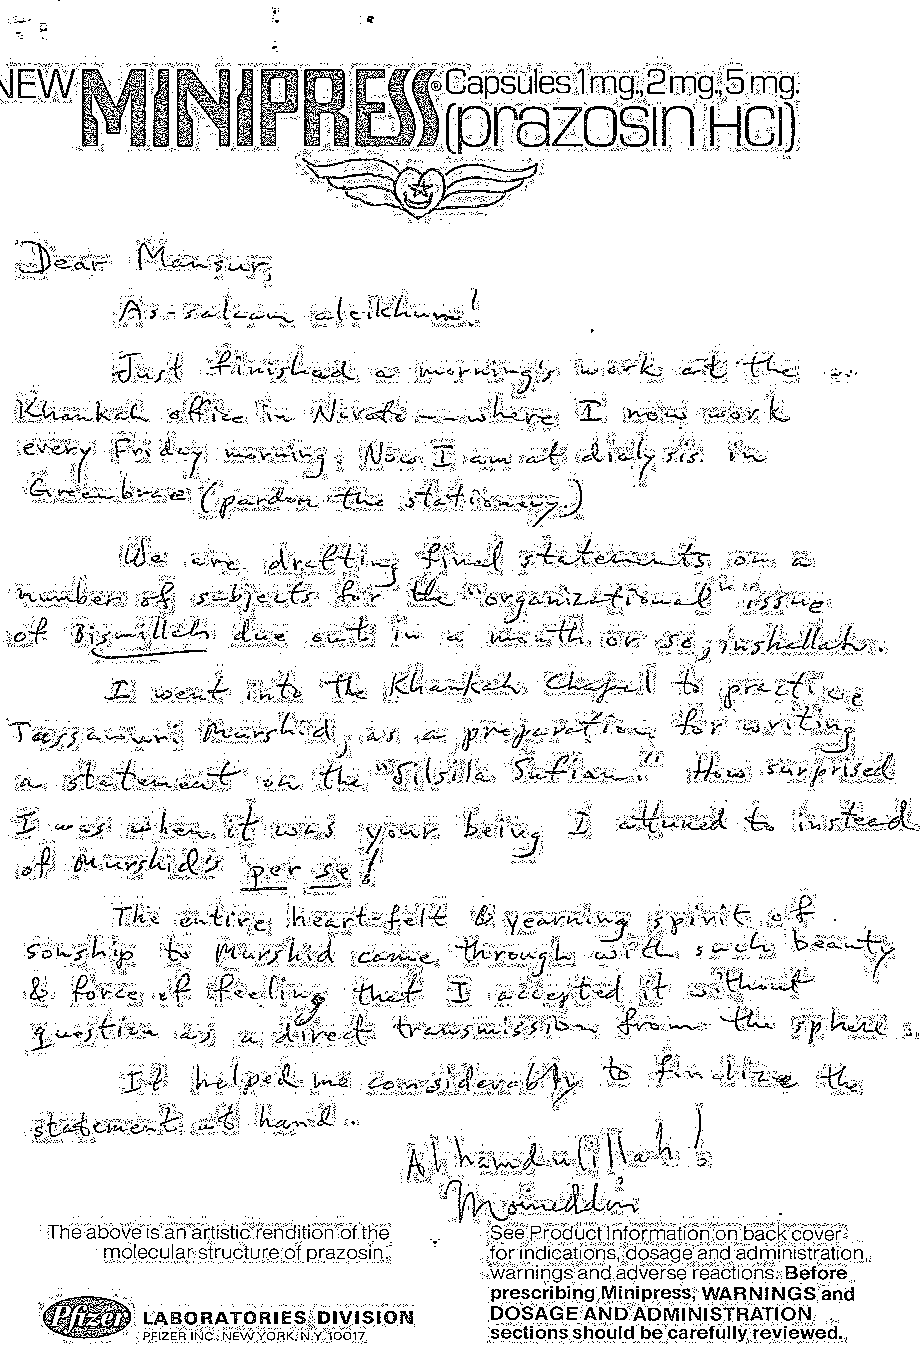 NEW MINIPRESS® Capsules 1 mg., 2 mg., 5 mg.
(prazosin HCl)
Dear Mansur,
As-salaam aleikhum!
Just finished a morning's work at the
Khankah office in Novato — where I now work
every Friday morning. Now I am at dialysis in
Greenbrae (pardon the stationery.)
We are drafting final statements on a
number of subjects for the "organizational" issue
of Bismillah due out in a month or so, inshallah.
I went into the Khankah Chapel to practice
Tassawuri Murshid, as a preparation for writing
a statement on the "Silsila Sufian." How surprised
I was when it was your being I attuned to instead
of Murshid's per se!
The entire heartfelt & yearning spirit of
sonship to Murshid came through with such beauty
& force of feeling that I accepted it without
question as a direct transmission from the spheres.
It helped me considerably to finalize the
statement at hand.
Alhamdulillah!
Moineddin
The above is an artistic rendition of the
molecular structure of prazosin.
Pfizer LABORATORIES DIVISION
PFIZER INC., NEW YORK, N.Y. 10017
See Product Information on back cover
for indications, dosage and administration,
warnings and adverse reactions. Before
prescribing Minipress, WARNINGS and
DOSAGE AND ADMINISTRATION
sections should be carefully reviewed.